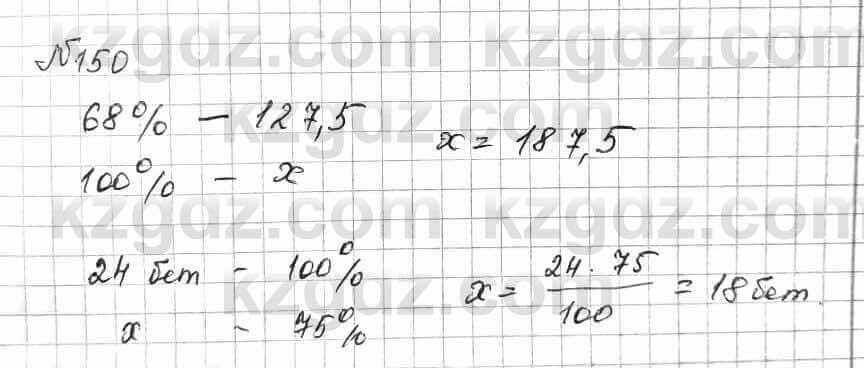 №150
68% - 127,5
100% - x
x = 187,5
24 бет - 100%
x - 75%
x = 24 · 75 / 100 = 18 бет.
kzgdz.com kzgdz.com
kzgdz.com
kzgdz.com kzgdz.com
kzgdz.com